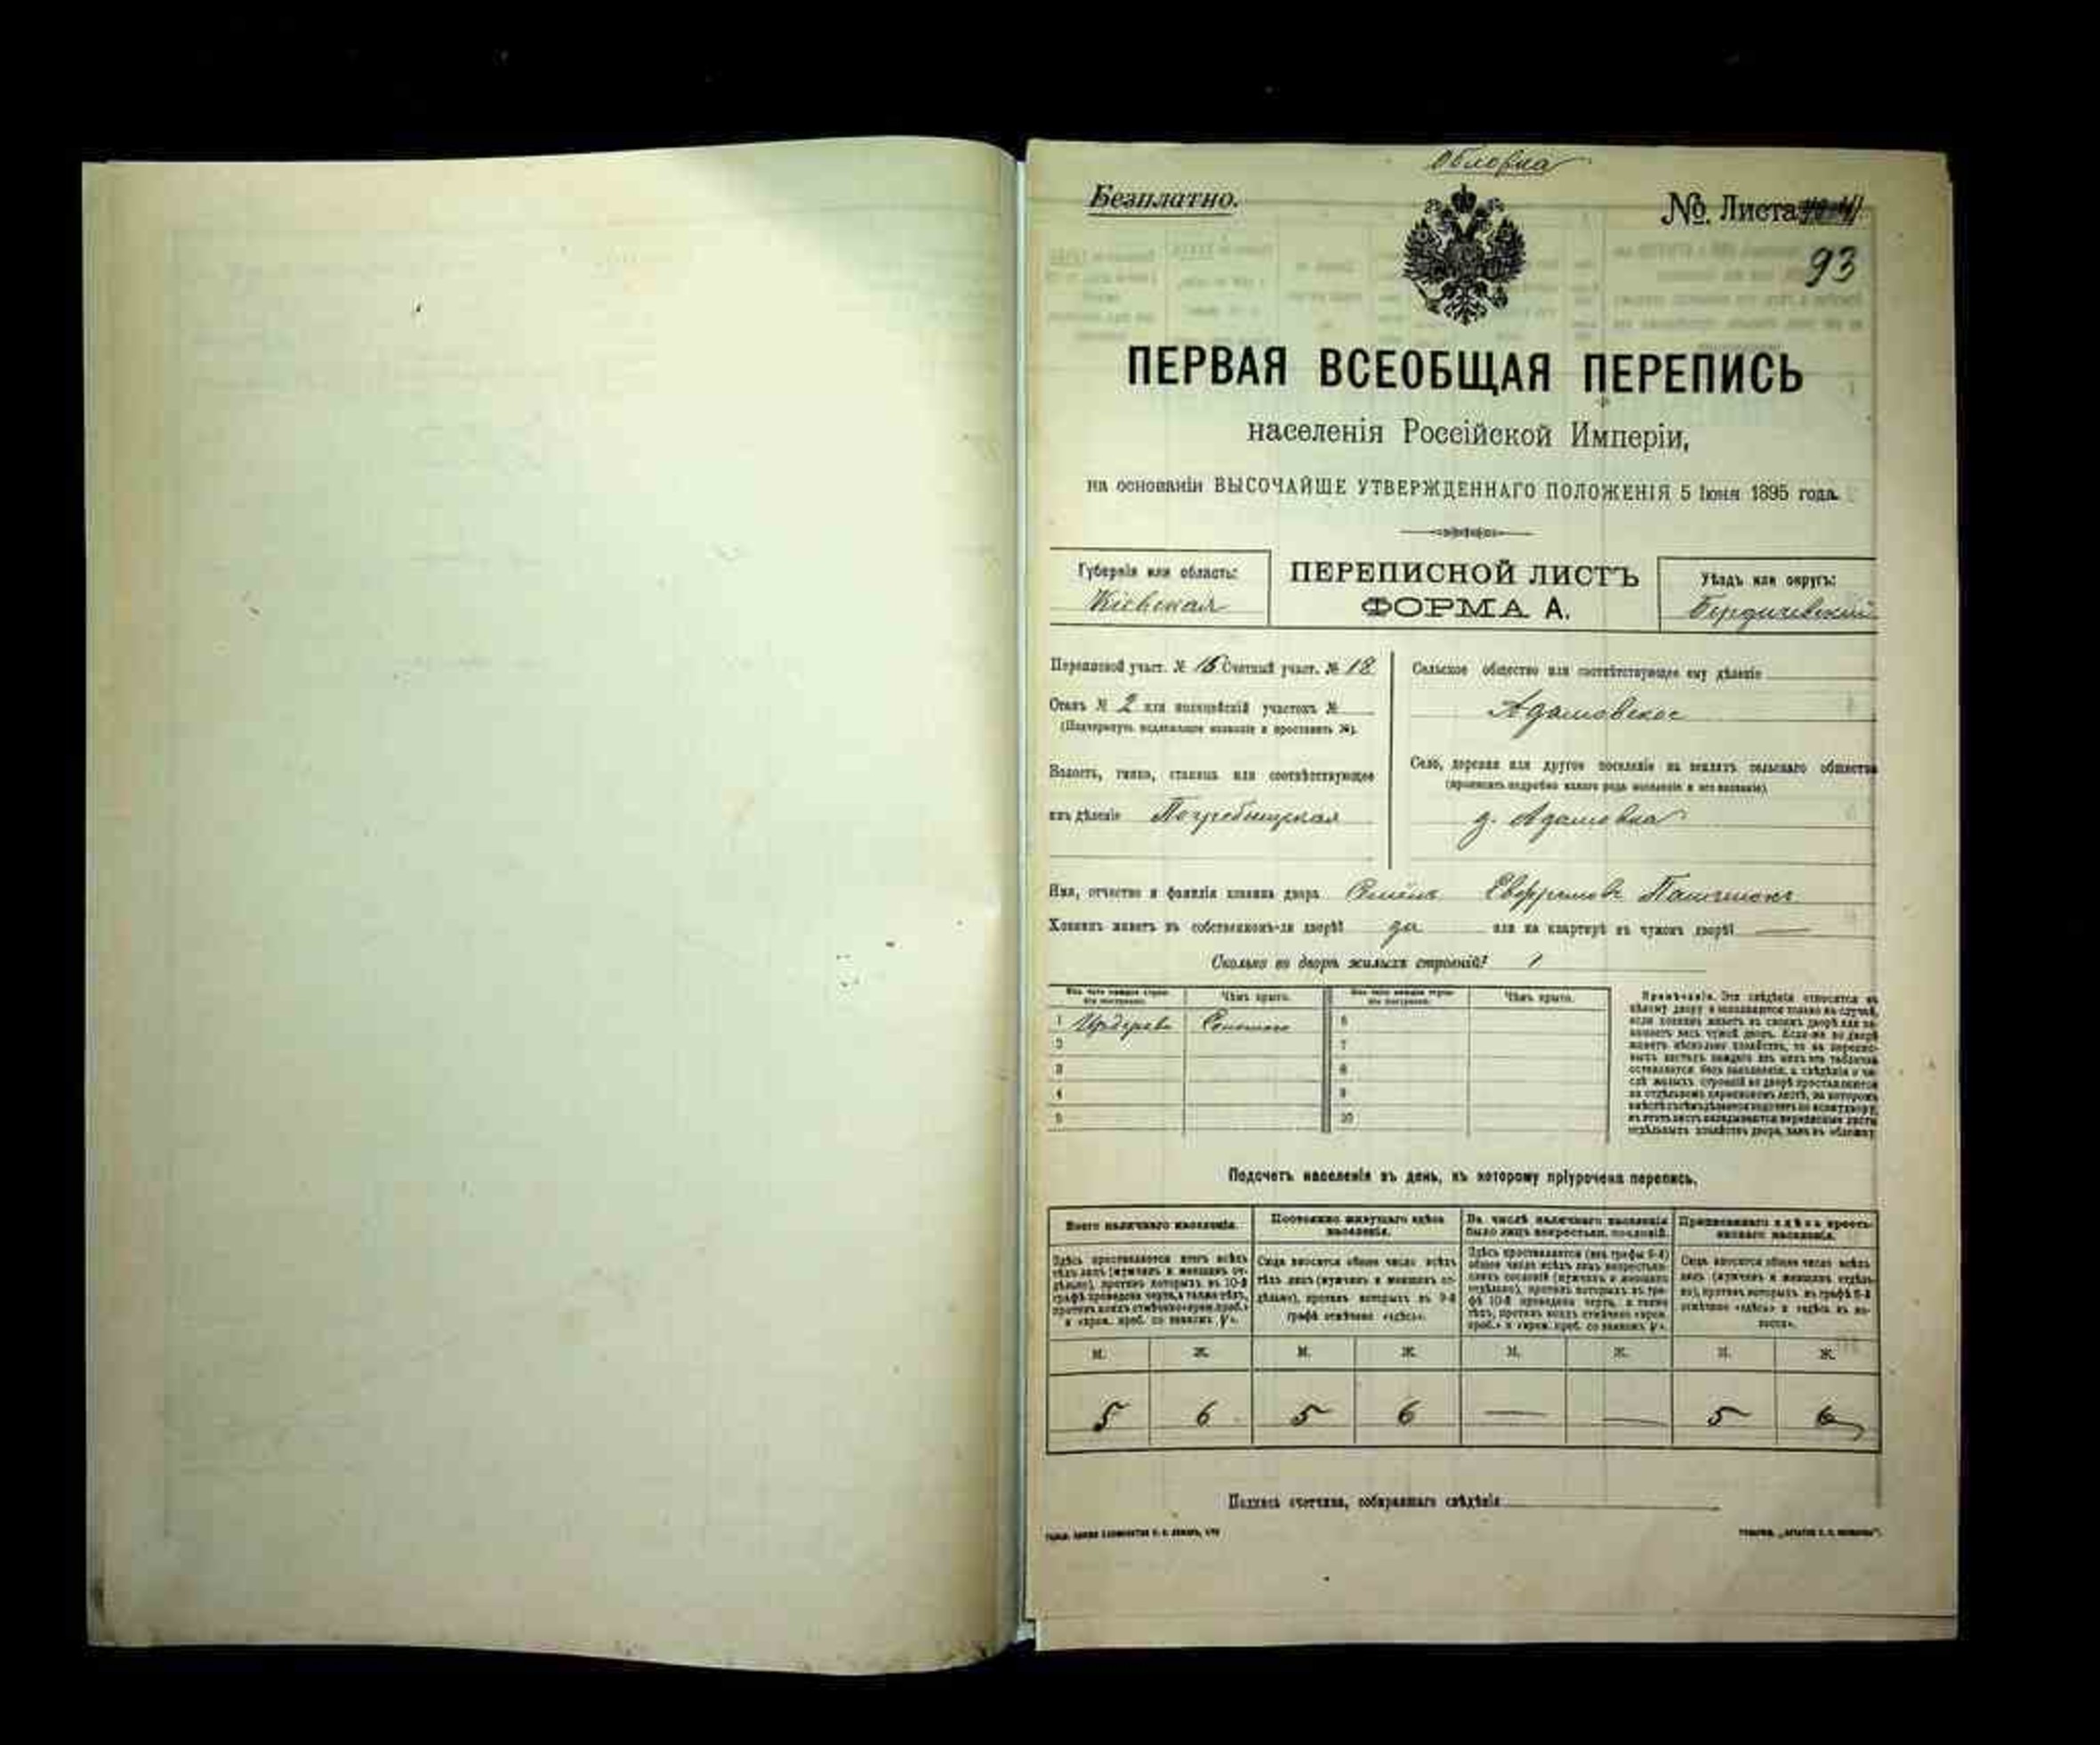 Безплатно.
№. Листа
93
ПЕРВАЯ ВСЕОБЩАЯ ПЕРЕПИСЬ
населенія Россійской Имперіи,
на основаніи ВЫСОЧАЙШЕ УТВЕРЖДЕННАГО ПОЛОЖЕНІЯ 5 Іюня 1895 года.
Губернія или область:
Кіевская
ПЕРЕПИСНОЙ ЛИСТЪ
ФОРМА А.
Уѣздъ или округъ:
Бердичевскій
Переписной участ. № 15 Счетный участ. № 18
Станъ № 2 или полицейскій участокъ №
(Подчеркнуть надлежащее названіе и проставить №).
Волость, гмина, станица или соотвѣтствующее
имъ дѣленіе Погребищская
Сельское общество или соотвѣтствующее ему дѣленіе
Адамовское
Село, деревня или другое поселеніе на земляхъ сельскаго общества
(прописать подробно какого рода поселеніе и его названіе)
д. Адамовка
Имя, отчество и фамилія хозяина двора Семенъ
Хозяинъ живетъ въ собственномъ-ли дворѣ? да или на квартирѣ въ чужомъ дворѣ? —
Сколько во дворѣ жилыхъ строеній? 1
Изъ чего каждое строеніе построено.
Чѣмъ крыто.
Изъ чего каждое строеніе построено.
Чѣмъ крыто.
1 Соломою 6
2 7
3 8
4 9
5 10
Примѣчаніе. Эти свѣдѣнія относятся къ
цѣлому двору и заполняются только въ случаѣ,
если хозяинъ живетъ въ своемъ дворѣ или занимаетъ весь чужой дворъ. Если-же во дворѣ
живетъ нѣсколько хозяйствъ, то на переписныхъ листахъ каждаго изъ нихъ эта табличка
оставляется безъ заполненія, а свѣдѣнія о числѣ жилыхъ строеній во дворѣ проставляются
на отдѣльномъ переписномъ листѣ, на которомъ
Подсчетъ населенія въ день, къ которому пріурочена перепись.
Всего наличнаго населенія.
Постоянно живущаго здѣсь населенія.
Въ числѣ наличнаго населенія было лицъ некрестьян. сословій.
Приписаннаго здѣсь крестьянскаго населенія.
Здѣсь проставляется итогъ всѣхъ
тѣхъ лицъ (мужчинъ и женщинъ отдѣльно), противъ которыхъ въ 10-й
графѣ проведена черта, а также тѣхъ,
противъ коихъ отмѣчено «врем. преб.»
и «врем. преб. со знакомъ V».
Сюда вносится общее число всѣхъ
тѣхъ лицъ (мужчинъ и женщинъ отдѣльно), противъ которыхъ въ 9-й
графѣ отмѣчено «здѣсь».
Здѣсь проставляется (изъ графы 5-й)
общее число всѣхъ лицъ некрестьянскихъ сословій (мужчинъ и женщинъ
отдѣльно), противъ которыхъ въ графѣ 10-й проведена черта, а также
тѣхъ, противъ коихъ отмѣчено «врем.
преб.» и «врем. преб. со знакомъ V».
Сюда вносится общее число всѣхъ
лицъ (мужчинъ и женщинъ отдѣльно), противъ которыхъ въ графѣ 8-й
отмѣчено «здѣсь» и «здѣсь въ волости».
М. Ж. М. Ж. М. Ж. М. Ж.
5 6 5 6 — — 5 6
Подпись счетчика, собиравшаго свѣдѣнія